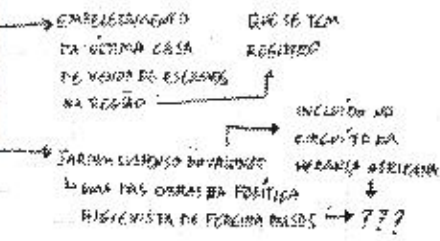 EMBELEZAMENTO
DA ÚLTIMA CASA
DE VENDA DE ESCRAVOS
NA REGIÃO
QUE SE TEM
REGISTRO
JARDIM SUSPENSO DO VALONGO
UMA DAS OBRAS DA POLÍTICA
HIGIENISTA DE PEREIRA PASSOS → ???
INCLUÍDO NO
CIRCUITO DA
HERANÇA AFRICANA